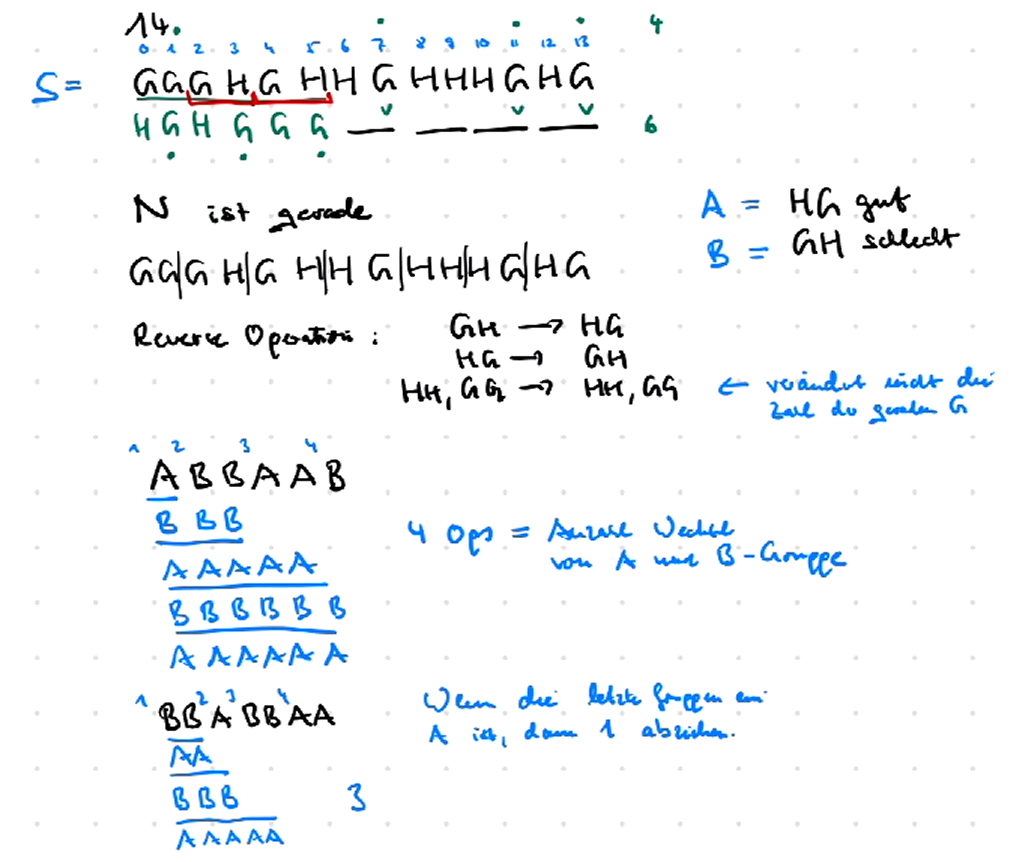 14. 4
0 1 2 3 4 5 6 7 8 9 10 11 12 13
S= GGGHGHHGHHHGHG
HGHGGG 6
N ist gerade
A = HG gut
B = GH schlecht
GG|GH|GH|HG|HH|HG|HG
Reverse Operation:
GH → HG
HG → GH
HH, GG → HH, GG ← verändert nicht die
Zahl der geraden G
1 2 3 4
ABBAAB
BBB
AAAAA
BBBBBB
AAAAAA
4 Ops = Anzahl Wechsel
von A und B-Gruppe
1 2 3 4
BBABBAA
AA
BBB 3
AAAAA
Wenn die letzte Gruppen ein
A ist, dann 1 abziehen.